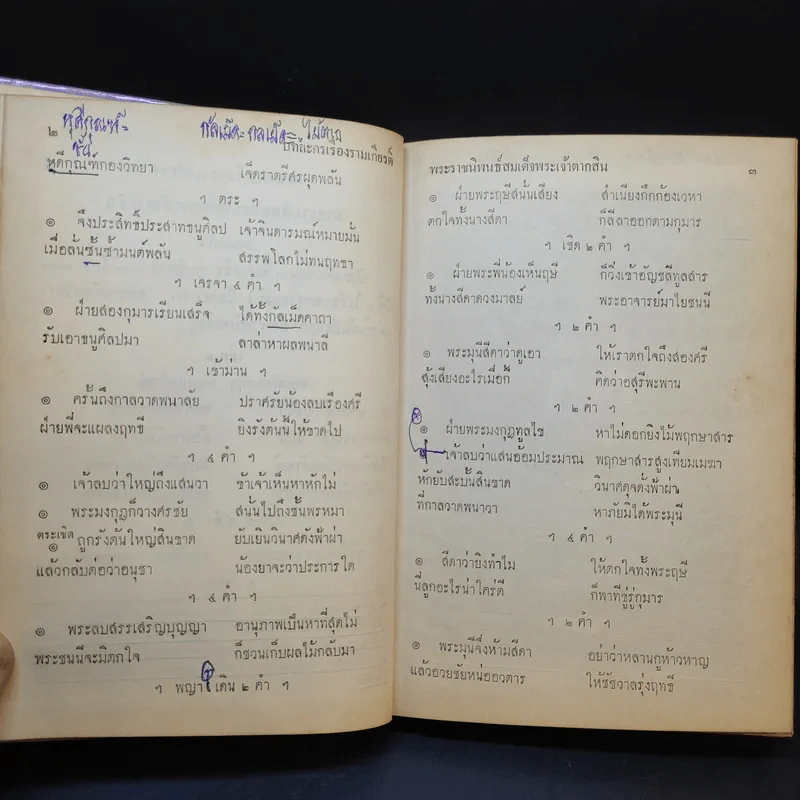 หุดีกุณฑ์=
กัลเม็ด= กลเม็ด=
๒
บทละครเรื่องรามเกียรติ์
หุดีกุณฑ์กองวิทยา เจ็ดราตรีศรผุดพลัน
ฯ ตระ ฯ
๏ จึงประสิทธิ์ประสาทธนูศิลป เจ้าจินดารมณ์หมายมั่น
เมื่อลั่นซั้นซ้ามนต์พลัน สรรพโลกไม่ทนฤทธา
ฯ เจรจา ๔ คำ ฯ
๏ ฝ่ายสองกุมารเรียนเสร็จ ได้ทั้งกัลเม็ดคาถา
รับเอาธนูศิลปมา ลาล่าหาผลพนาลี
ฯ เข้าม่าน ฯ
๏ ครั้นถึงกาลวาดพนาลัย ปราศรัยน้องลบเรืองศรี
ฝ่ายพี่จะแผลงฤทธี ยิงรังต้นนี้ให้ขาดไป
ฯ ๔ คำ ฯ
๏ เจ้าลบว่าใหญ่ถึงแสนวา ข้าเจ้าเห็นหาหักไม่
๏ พระมงกุฎก็วางศรชัย สนั่นไปถึงชั้นพรหมา
ตระเชิด
๏ ถูกรังต้นใหญ่สินขาด ยับเยินวินาศดังฟ้าผ่า
แล้วกลับต่อว่าอนุชา น้องยาจะว่าประการใด
ฯ ๔ คำ ฯ
๏ พระลบสรรเสริญบุญญา อานุภาพเป็นหาที่สุดไม่
พระชนนีจะมิตกใจ ก็ชวนเก็บผลไม้กลับมา
ฯ พญาเดิน ๒ คำ ฯ
พระราชนิพนธ์สมเด็จพระเจ้าตากสิน
๓
๏ ฝ่ายพระฤษีสนั่นเสียง สำเนียงกึกก้องเวหา
ตกใจทั้งนางสีดา ก็ลีลาออกตามกุมาร
ฯ เชิด ๒ คำ ฯ
๏ ฝ่ายพระพี่น้องเห็นฤษี ก็วิ่งเข้าอัญชลีทูลสาร
ทั้งนางสีดาดวงมาลย์ พระอาจารย์มาไยชนนี
ฯ ๒ คำ ฯ
๏ พระมุนีสีดาว่าดูเอา ให้เราตกใจถึงสองศรี
สุ้งเสียงอะไรเมื่อกี้ คิดว่าอสุรีพะพาน
ฯ ๒ คำ ฯ
๏ ฝ่ายพระมงกุฎทูลไข หาไม่ดอกยิงไม้พฤกษาสาร
๏ เจ้าลบว่าแสนอ้อมประมาณ พฤกษาสารสูงเทียมเมฆา
หักยับสะบั้นสินขาด วินาศดุจดังฟ้าผ่า
ที่กาลวาดพนาวา หาภัยมิได้พระมุนี
ฯ ๔ คำ ฯ
๏ สีดาว่ายิงทำไม ให้ตกใจทั้งพระฤษี
นี่ลูกอะไรน่าใคร่ตี ก็พาทีขู่รู่กุมาร
ฯ ๒ คำ ฯ
๏ พระมุนีจึงห้ามสีดา อย่าว่าหลานกูห้าวหาญ
แล้วอวยชัยหน่ออวตาร ให้ชัชวาลรุ่งฤทธี